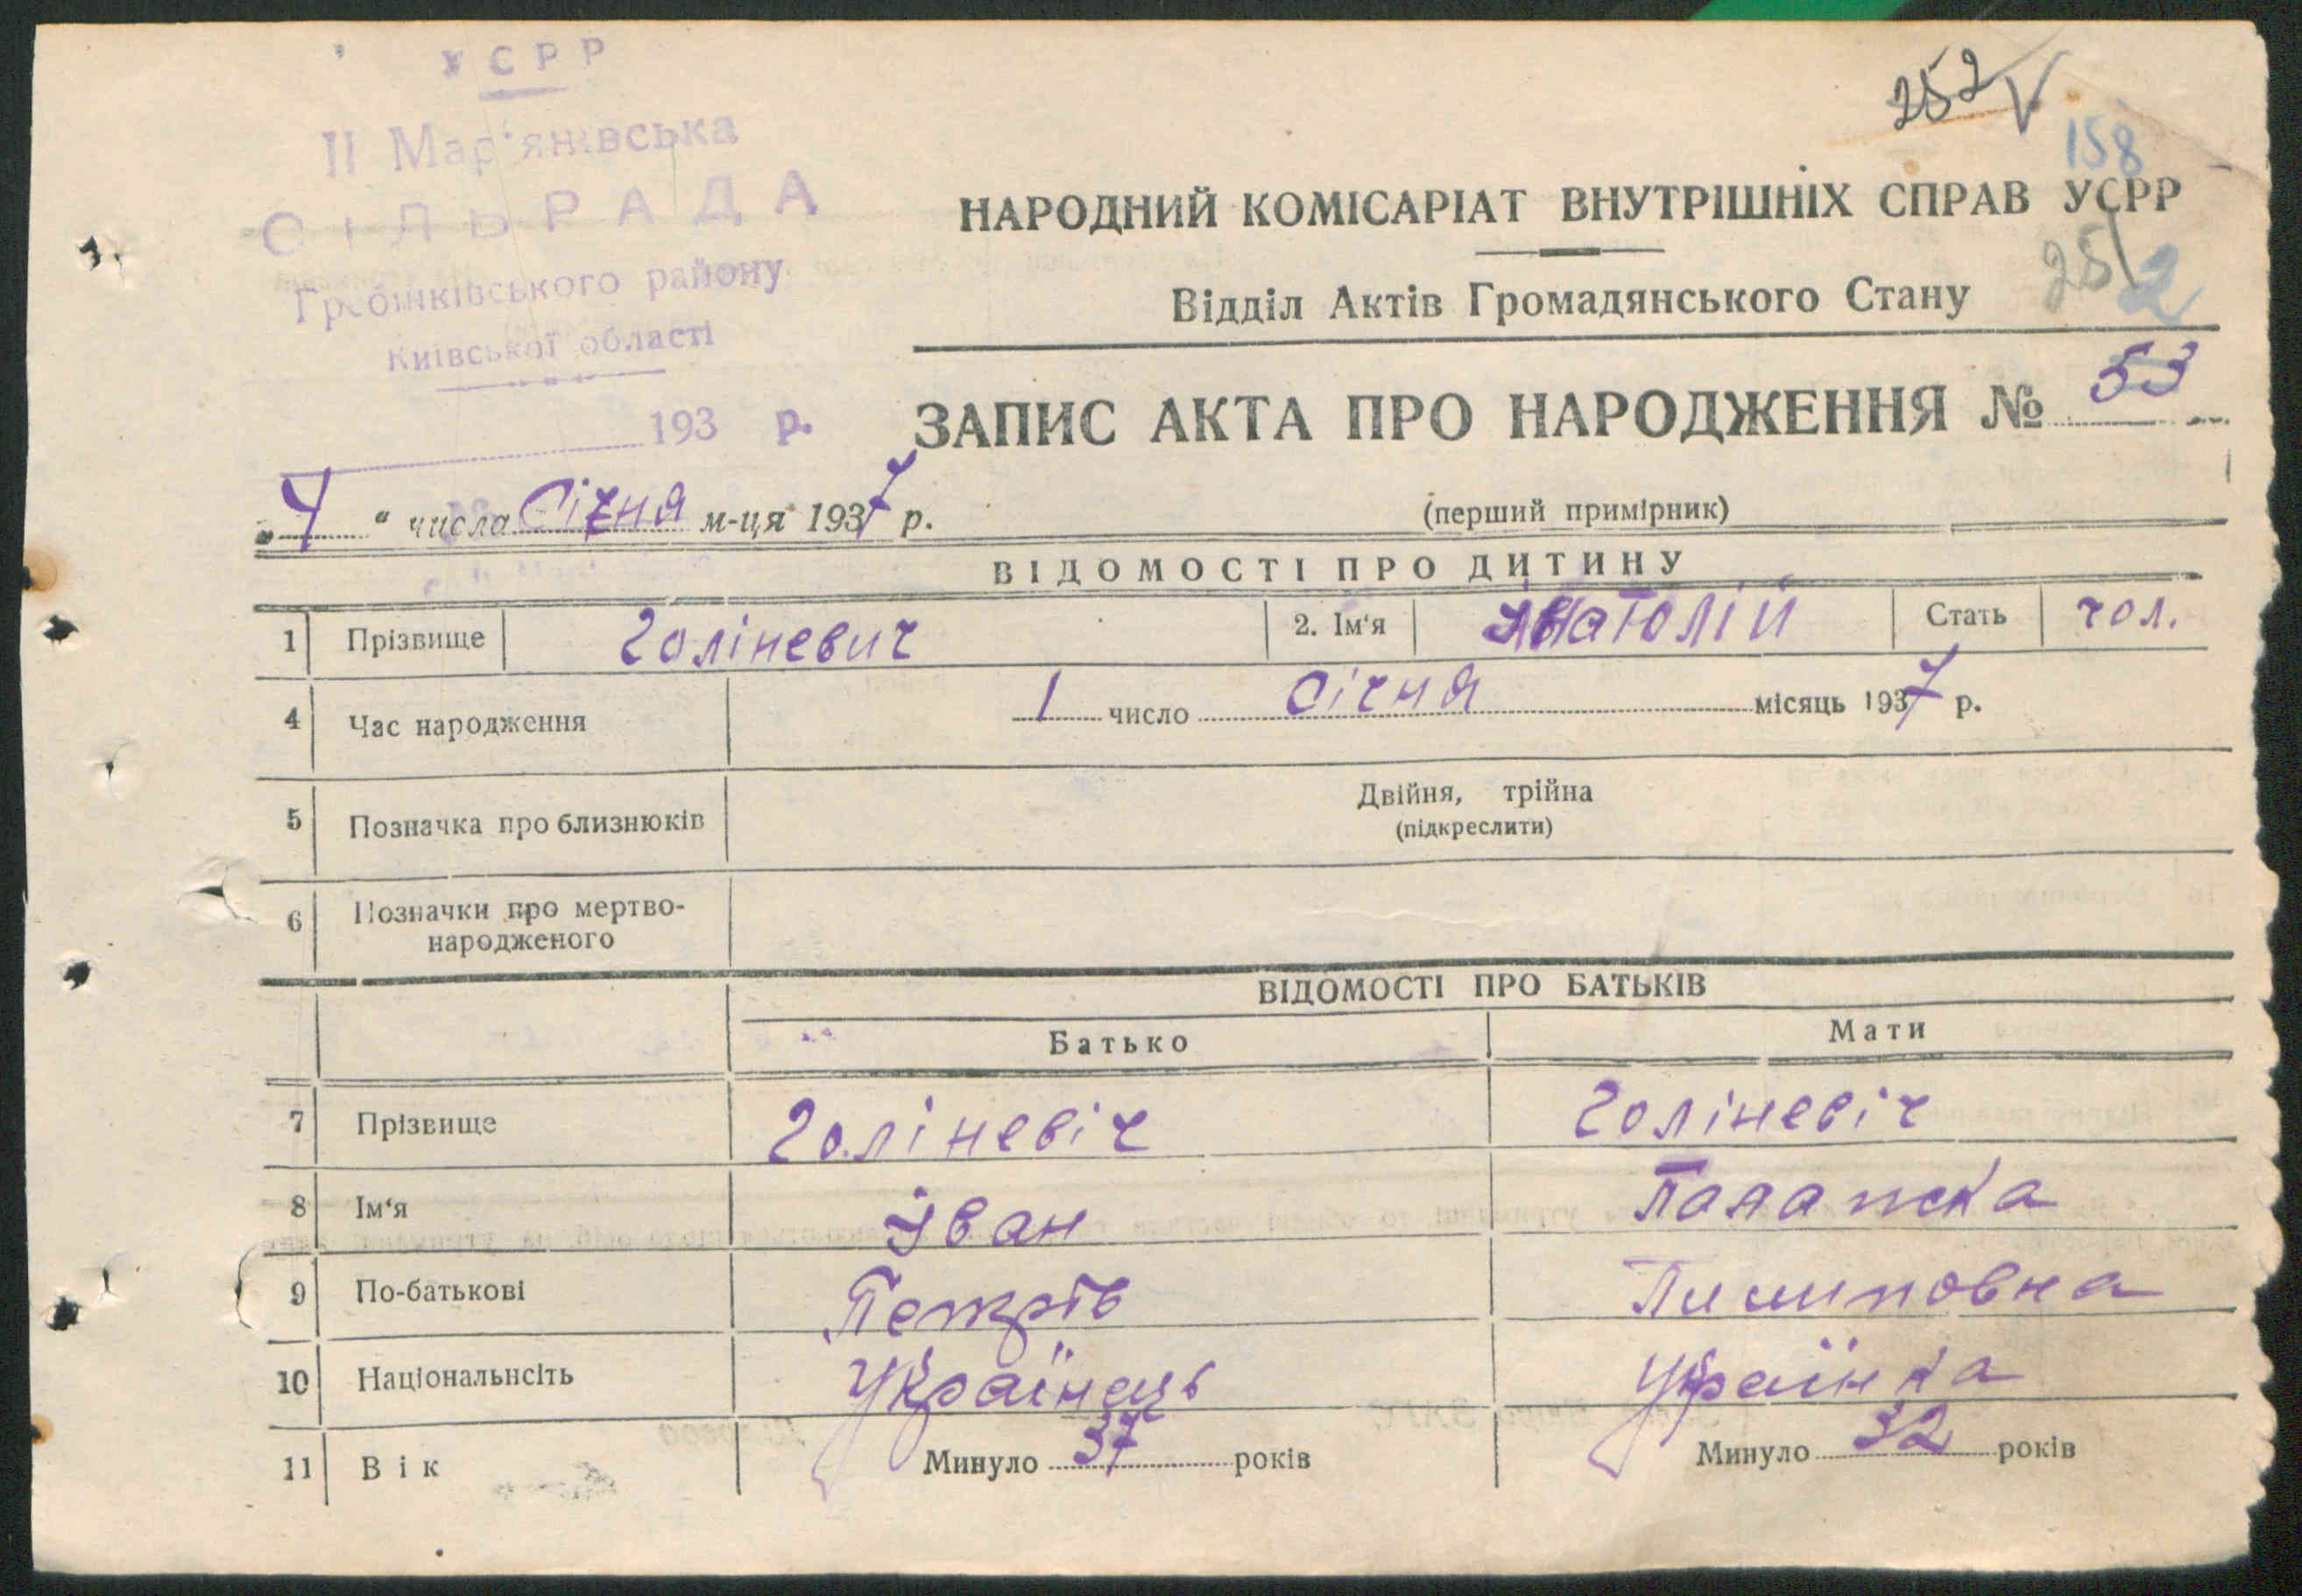 УСРР
II Мар'янівська
СІЛЬРАДА
Гребінківського району
Київської області
193 р.
252 V
158
НАРОДНИЙ КОМІСАРІАТ ВНУТРІШНІХ СПРАВ УСРР
252
Відділ Актів Громадянського Стану
ЗАПИС АКТА ПРО НАРОДЖЕННЯ № 53
„4“ числа Січня м-ця 1937 р.
(перший примірник)
ВІДОМОСТІ ПРО ДИТИНУ
1 Прізвище Голіневич 2. Ім'я Анатолій Стать чол.
4 Час народження 1 число Січня місяць 1937 р.
5 Позначка про близнюків Двійня, трійна
(підкреслити)
6 Позначки про мертво-
народженого
ВІДОМОСТІ ПРО БАТЬКІВ
Батько Мати
7 Прізвище Голіневіч Голіневіч
8 Ім'я Іван Палажка
9 По-батькові Петрів Пилиповна
10 Національнсіть Українець Українка
11 Вік Минуло 37 років Минуло 32 років